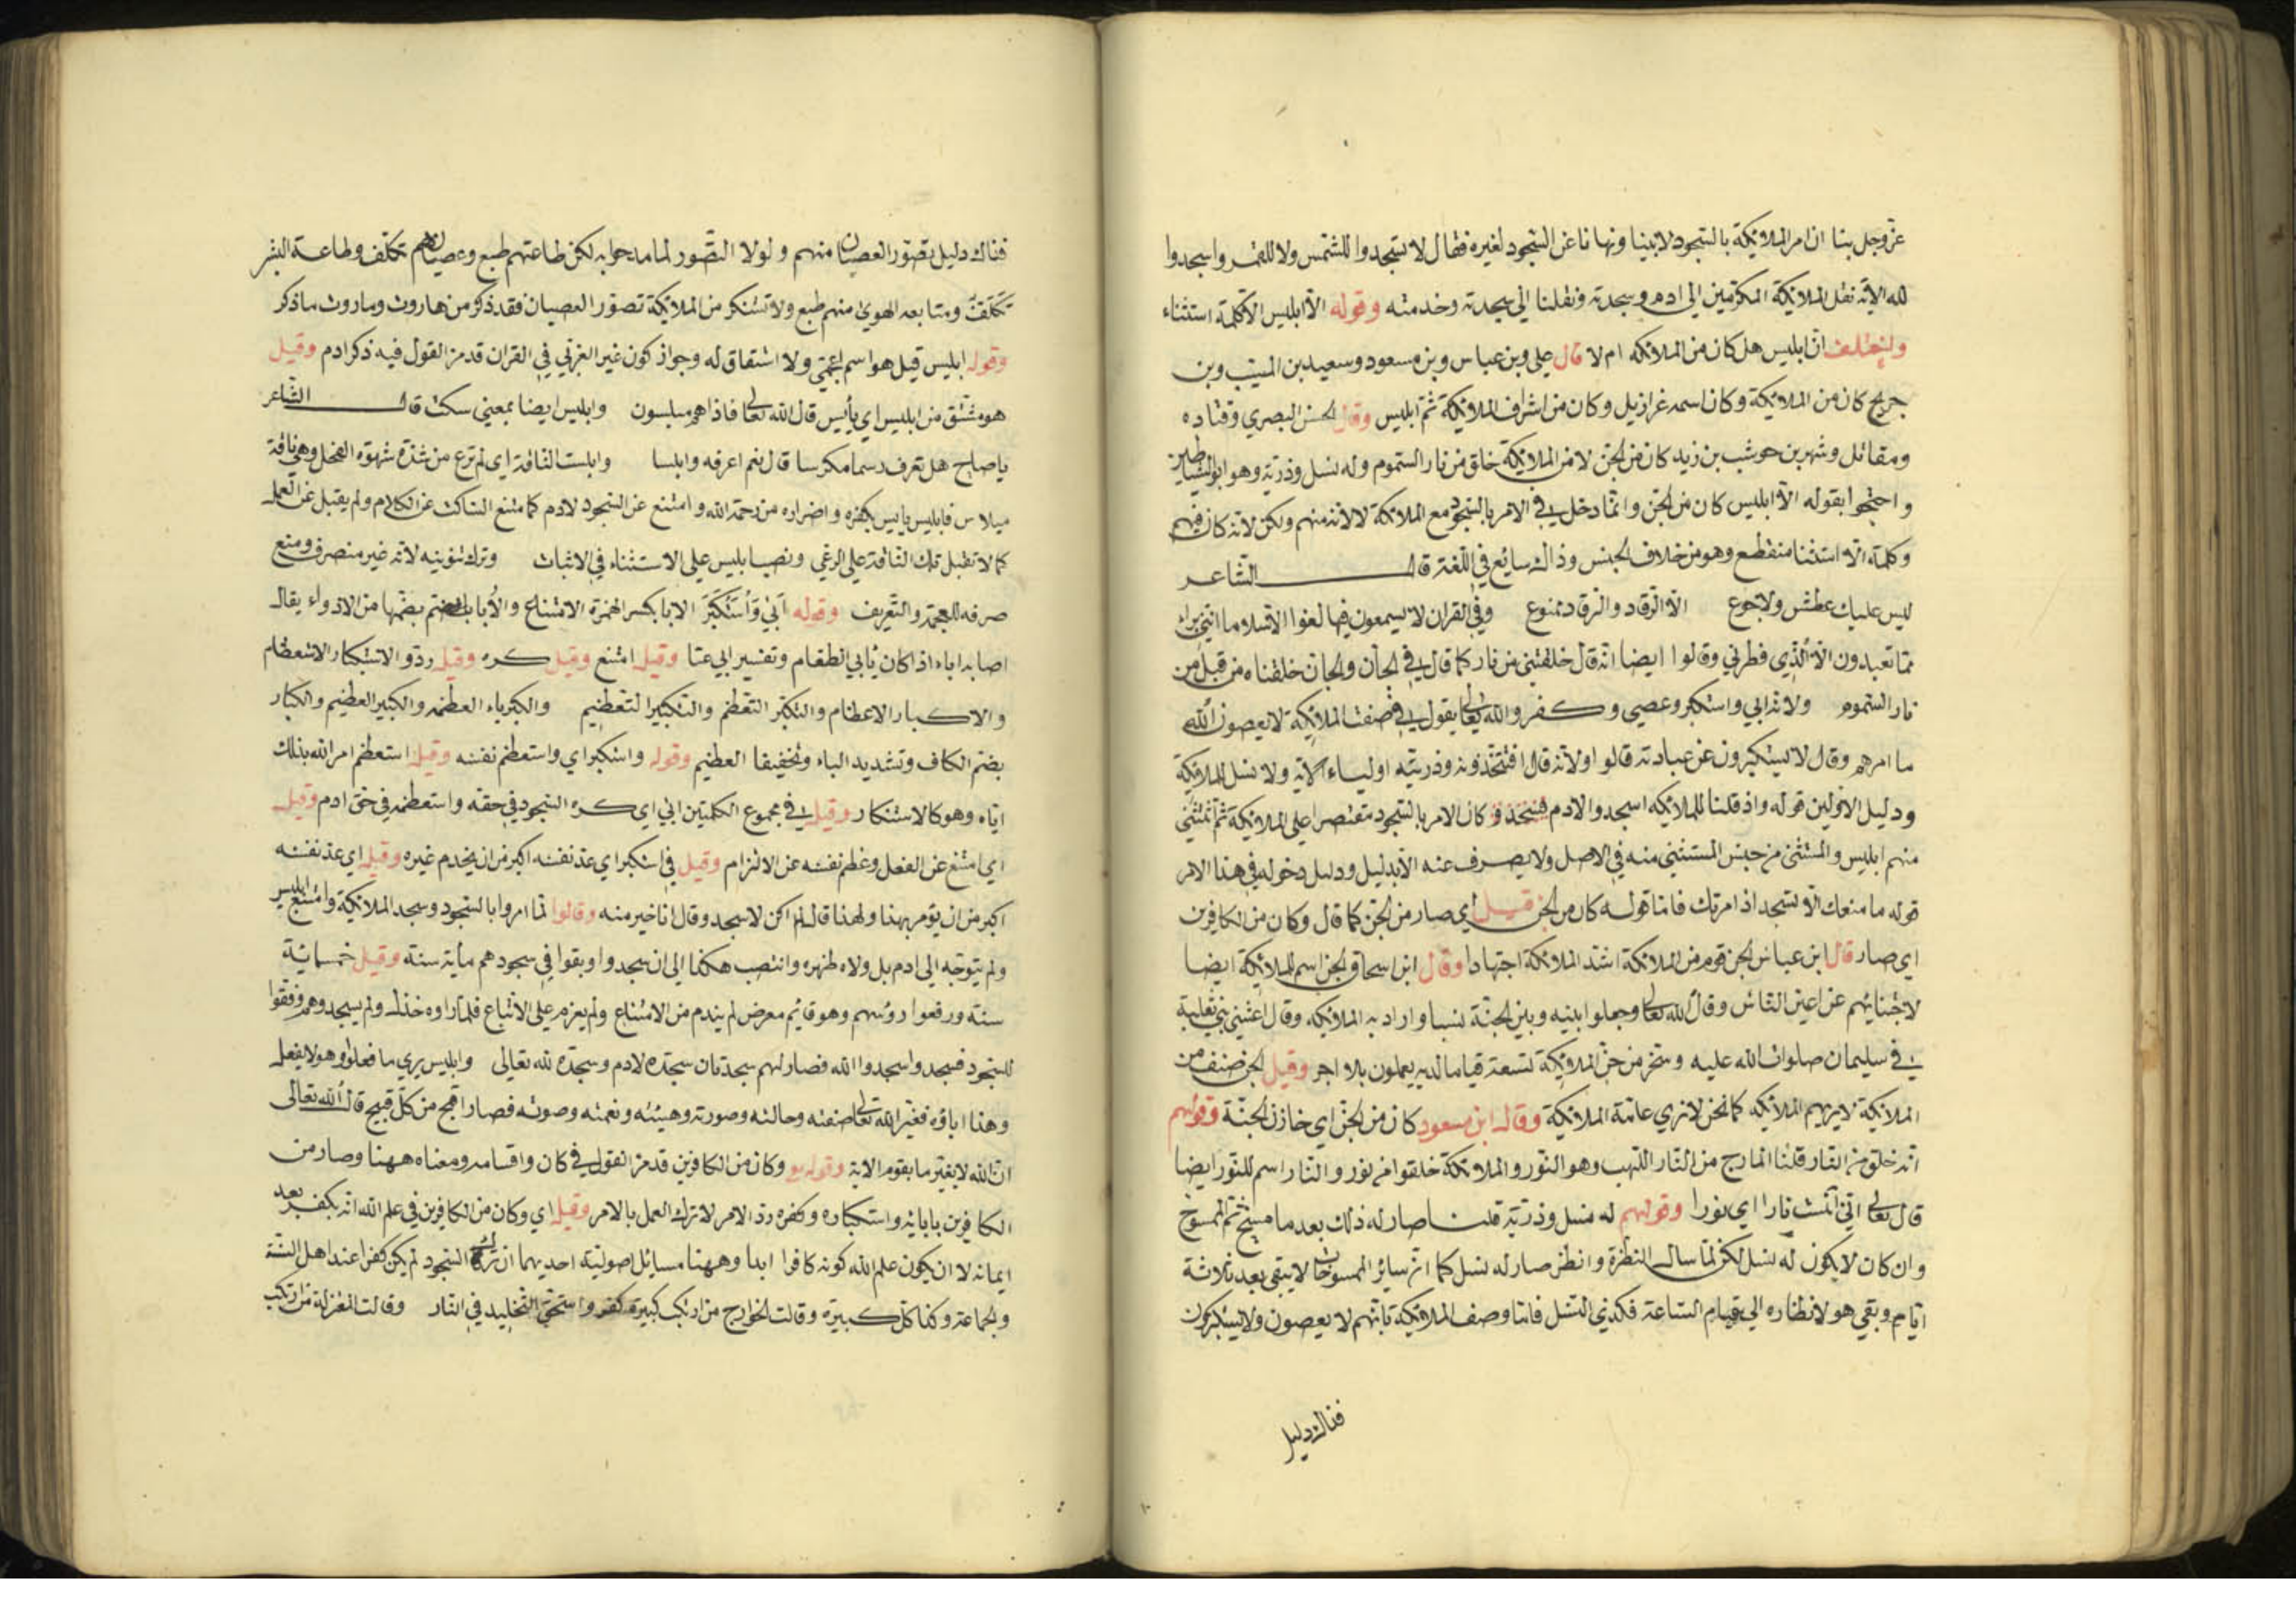 عز وجل بنا ان امر الملائكة بالسجود لابينا ونهانا عن السجود لغيره فقال لا تسجدوا للشمس ولا للقمر واسجدوا
لله الاية نقل الملائكة المكرمين الى ادم وسجدته ونقلنا الي سجدته وخدمته وقوله الا ابليس الا كلمة استثناء
ان ابليس هل كان من الملائكه ام لا قال علي وبن عباس وبن مسعود وسعيد بن المسيب وبن
جريج كان من الملائكة وكان اسمه عزازيل وكان من اشراف الملائكة ثم ابليس وقال الحسن البصري وقتاده
ومقاتل وشهر بن حوشب بن زيد كان من الجن لا من الملائكة خلق من نار السموم وله نسل وذرية وهو ابو الشياطين
واحتجوا بقوله الا ابليس كان من الجن وانما دخل في الامر بالسجود مع الملائكة لا لانه منهم ولكن لانه كان فيهم
وكلمة الا استثنا منقطع وهو من خلاف الجنس وذالك سايع في اللغة قال الشاعر
ليس عليك عطش ولا جوع الا الرقاد والرقاد ممنوع وفي القران لا يسمعون فيها لغوا الا سلاما انني براء
مما تعبدون الا الذي فطرني وقالوا ايضا انه قال خلقتني من نار كما قال في الجان والجان خلقناه من قبل من
نار السموم ولانه ابي واستكبر وعصي وكفر والله تعالى يقول في صفة الملائكة لا يعصون الله
ما امرهم وقال لا يستكبرون عن عبادته قالوا ولانه قال افتتخذونه وذريته اولياء الاية ولا نسل للملائكة
ودليل الاولين قوله واذ قلنا للملائكه اسجدوا لادم كان الامر بالسجود مقتصرا على الملائكة ثم استثني
منهم ابليس والمستثنى من جنس المستثني منه في الاصل ولا يصرف عنه الا بدليل ودليل دخوله في هذا الامر
قوله ما منعك الا تسجد اذ امرتك فاما قوله كان من الجن قيل اي صار من الجن كما قال وكان من الكافرين
اي صار قال ابن عباس الجن قوم من الملائكة اشد الملائكة اجتهادا وقال ابن اسحاق الجن اسم للملائكة ايضا
لاجتنانهم عن اعين الناس وقال الله تعالى وجعلوا بينه وبين الجنة نسبا واراد به الملائكه وقال اعشى بني ثعلبة
في سليمان صلوات الله عليه وسخر من جن الملائكة تسعة قياما لديه يعملون بلا اجر وقيل الجن صنف من
الملائكة لا يريهم الملائكه كما نحن لا نري عامة الملائكة وقال ابن مسعود كان من الجن اي خازن الجنة وقولهم
انه خلق من النار قلنا المارج من النار اللهب وهو النور والملائكة خلقوا من نور والنار اسم للنور ايضا
قال تعالى اني آنست نارا اي نورا وقولهم له نسل وذرية قلنا صار له ذلك بعد ما مسخ ثم الممسوخ
وان كان لا يكون له نسل لكن لما سال النظرة وانظر صار له نسل كما ان سائر الممسوخات لا يبقى بعد ثلاثة
ايام وبقي هو لانظاره الي قيام الساعة فكذي النسل فاما وصف الملائكة بانهم لا يعصون ولا يستكبرون
فذالك دليل
فذالك دليل تصور العصيان منهم ولولا التصور لما مدحوا به لكن طاعتهم طبع وعصيانهم تكلف وطاعة البشر
تكلف ومتابعه الهوى منهم طبع ولا تستنكر من الملائكة تصور العصيان فقد ذكر من هاروت وماروت ماذكر
وقوله ابليس قيل هو اسم اعجمي ولا اشتقاق له وجواز كون غير العربي في القران قد مر القول فيه ذكر ادم وقيل
هو مشتق من ابليس اي يأيس قال الله تعالى فاذا هم مبلسون وابليس ايضا بمعنى سكت قال الشاعر
ياصاح هل تعرف رسما مكرسا قال نعم اعرفه وابلسا وابلست الناقة اي لم ترع من شدة شهوة الفحل وهي ناقة
مبلاس فابليس يايس بكفره واضراره من رحمة الله وامتنع عن السجود لادم كما متنع الساكت عن الكلام ولم يقبل عن العمل
كما لا تقبل تلك الناقة على الرعي ونصب ابليس على الاستثناء في الاثبات وترك تنوينه لانه غير منصرف ومنع
صرفه للعجمة والتعريف وقوله أبى وَاسْتَكْبَرَ الابا بكسر الهمزة الامتناع والأبا بضمها من الادواء يقال
اصابه اباء اذا كان يابي الطعام وتفسير ابي عتا وقيل امتنع وقيل كره وقيل رد والاستكبار الاستعظام
والاكبار الاعظام والتكبر التعظم والتكبير التعظيم والكبرياء العظمه والكبير العظيم والكبار
بضم الكاف وتشديد الباء وتخفيفا العظيم وقوله واستكبر اي واستعظم نفسه وقيل استعظم امر الله بذلك
اياه وهو كالاستنكار وقيل في مجموع الكلمتين ابي اي كره السجود في حقه واستعظمه في حق ادم وقيل
اي امتنع عن الفعل وعظم نفسه عن الالتزام وقيل في استكبر اي عد نفسه اكبر من ان يخدم غيره وقيل اي عد نفسه
اكبر من ان يؤمر بهذا ولهذا قال لم اكن لاسجد وقال انا خير منه وقالوا لما امروا بالسجود وسجد الملائكة وامتنع ابليس
ولم يتوجه الى ادم بل ولاه ظهره وانتصب هكذا الى ان سجدوا وبقوا في سجودهم ماية سنة وقيل خمسماية
سنة ورفعوا رؤسهم وهو قايم معرض لم يندم من الامتناع ولم يعزم على الاتباع فلما راوه ولم يسجد وهم وفقوا
للسجود فسجدوا الله فصار لهم سجدتان سجدة لادم وسجدة لله تعالى وابليس يري ما فعلوا وهو لا يفعل
وهذا اباؤه فغير الله تعالى صفته وحالته وصورته وهيئته ونعمته وصوته فصار اقبح من كل قبيح قال الله تعالى
ان الله لا يغير ما بقوم الاية وقوله وكان من الكافرين قد مر القول في كان واقسامه ومعناه ههنا وصار من
الكافرين بابائه واستكباره وكفره رد الامر لا ترك العمل بالامر وقيل اي وكان من الكافرين في علم الله انه يكفر بعد
ايمانه لا ان يكون علم الله كونه كافرا ابدا وههنا مسايل اصولية احديهما ان ترك السجود لم يكن كفرا عند اهل السنة
والجماعة وكذا كل كبيرة وقالت الخوارج من ارتكب كبيرة كفر واستحق التخليد في النار وقالت المعتزلة من ارتكب